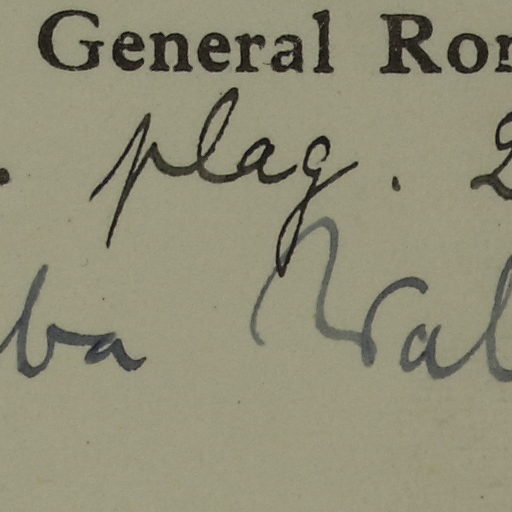 General Ro
. plag. 2
ba Wal